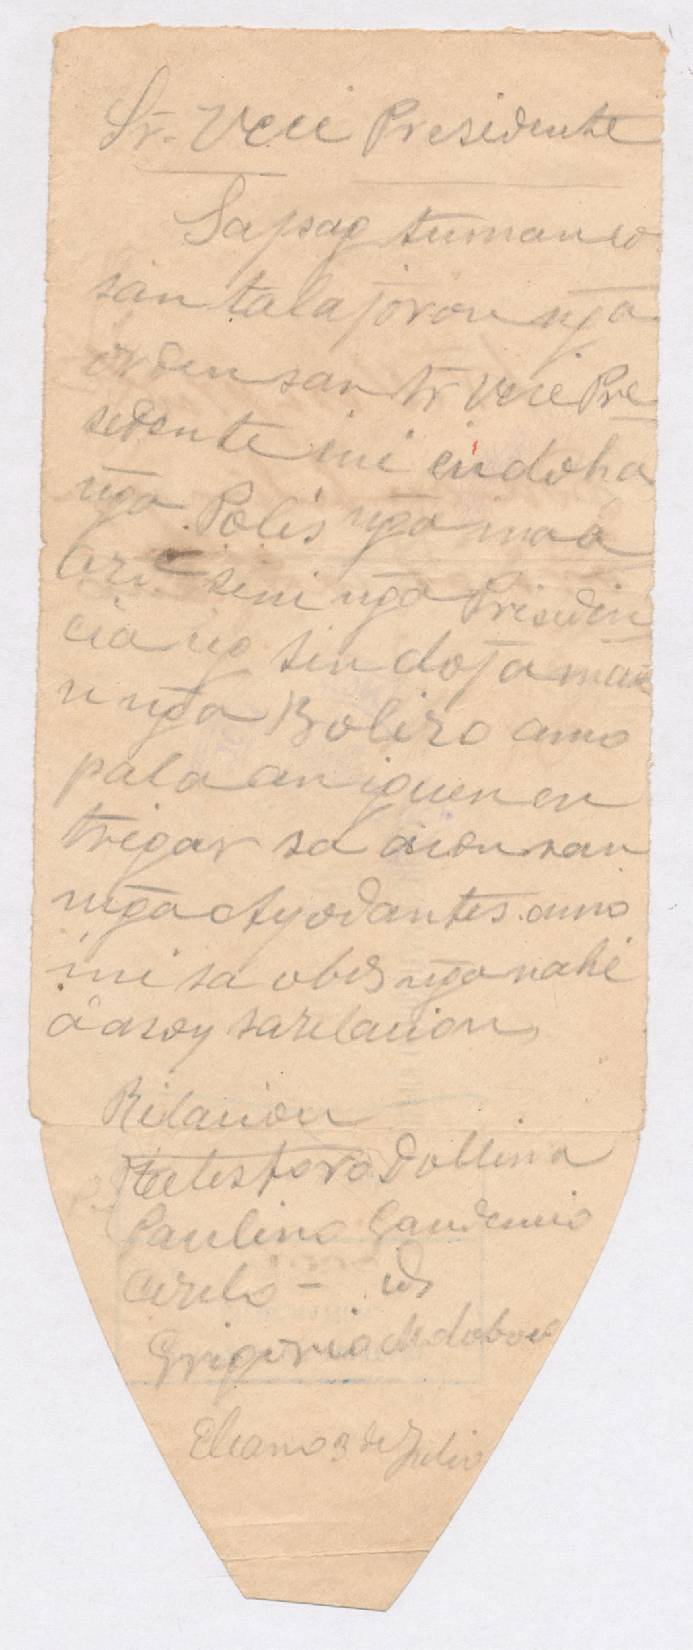 Sr. Veci Presidente
Sapag tuman co
san talajoron nga
orden san Sr Veci Pre
sedente ini en doha
nga Polis nga maa
bri sini nga Prisedin
cia ug sin doja man
u nga Bolizo amo
pala an iguen en
trigar sa acon san
mga Ayodantes amo
ini sa obos nga nahi
a asoy sa relacion
Rilacion
Telesforo Dollina
Paulino Gaudencio
Cerelo - id
Grigorio
3 de Julio